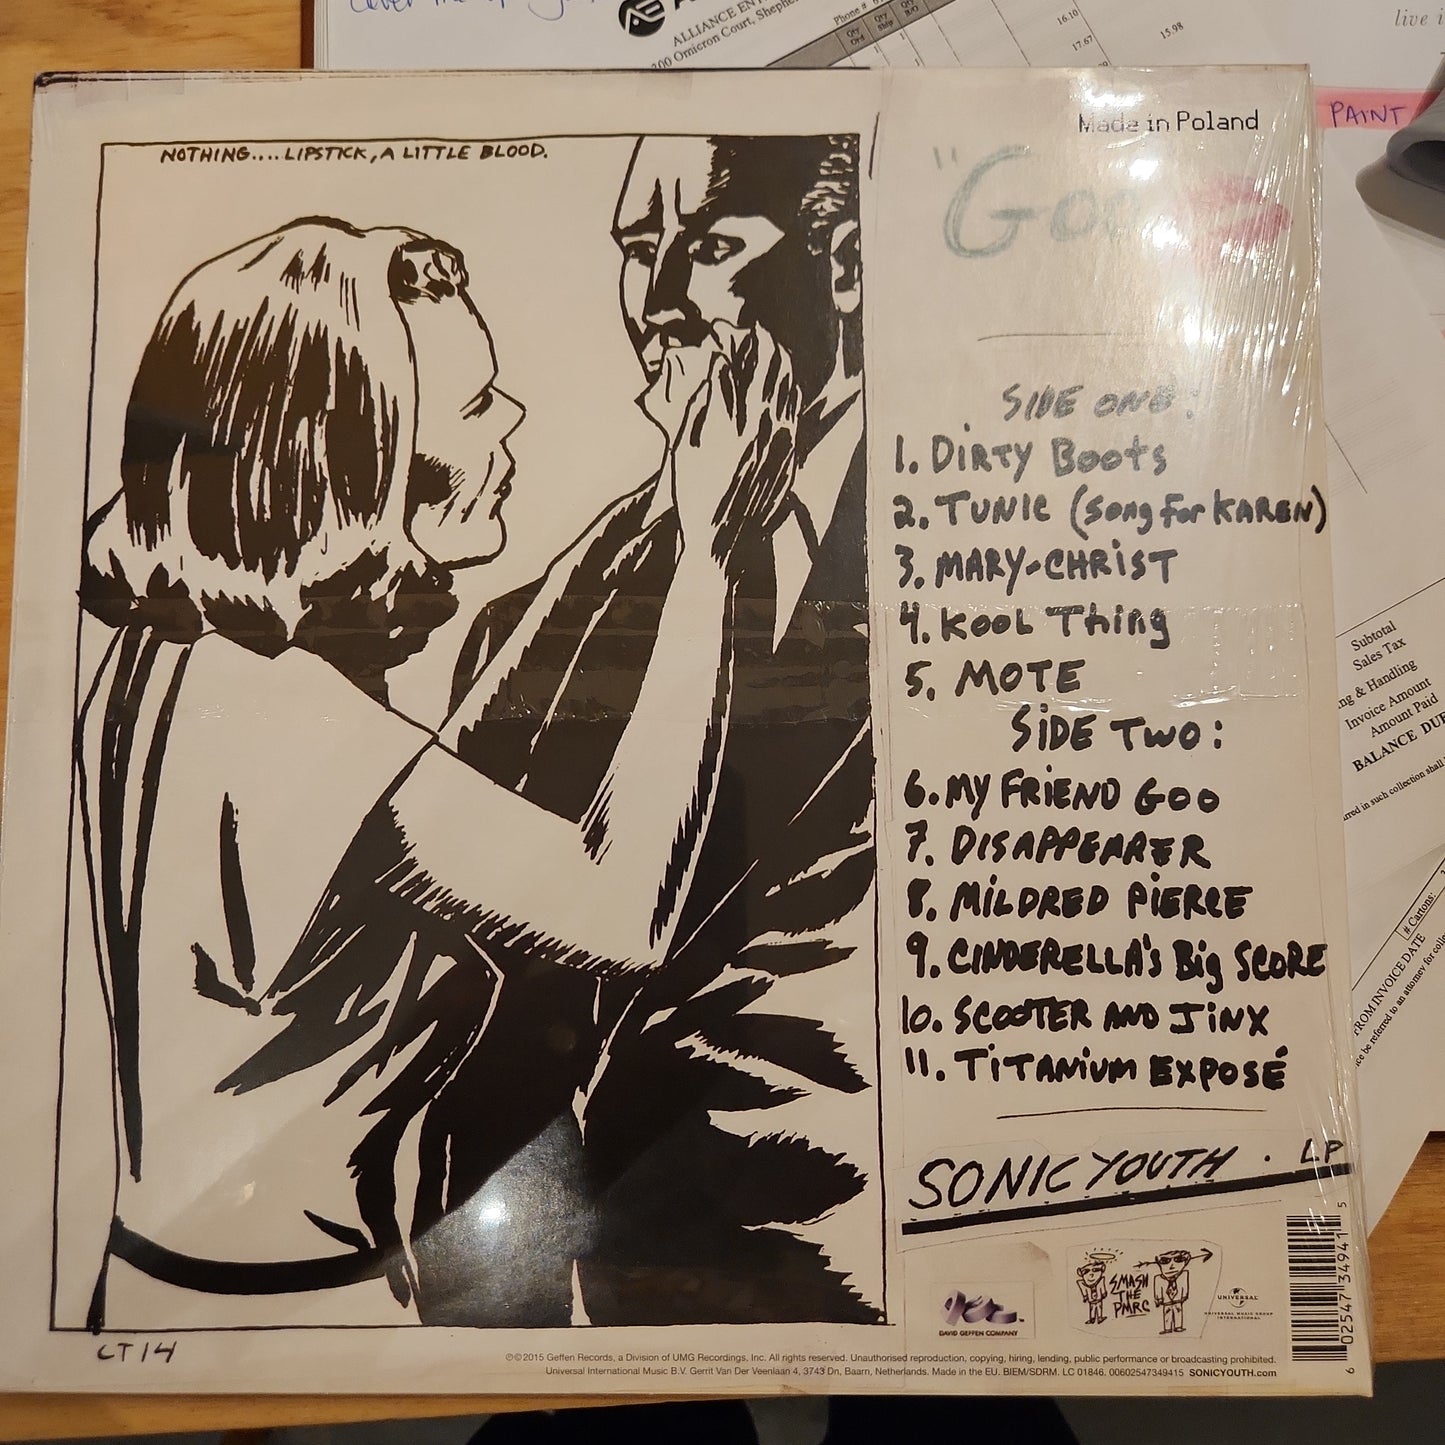 ALLIANCE ENT
Omicron Court, Shephe
Phone #
Qty Ord
Qty Ship
Qty B/O
16.10
17.67
15.98
live i
PAINT
Made in Poland
NOTHING....LIPSTICK, A LITTLE BLOOD.
"Goo
SIDE ONE:
1. DIRTY BOOTS
2. TUNIC (SONG FOR KAREN)
3. MARY-CHRIST
4. KOOL THING
5. MOTE
SIDE TWO:
6. MY FRIEND GOO
7. DISAPPEARER
8. MILDRED PIERCE
9. CINDERELLA'S BIG SCORE
10. SCOOTER AND JINX
11. TITANIUM EXPOSÉ
SONIC YOUTH . LP
DAVID GEFFEN COMPANY
SMASH
THE
PMRC
UNIVERSAL
UNIVERSAL MUSIC GROUP
INTERNATIONAL
6 02547 34941 5
CT14
℗©2015 Geffen Records, a Division of UMG Recordings, Inc. All rights reserved. Unauthorised reproduction, copying, hiring, lending, public performance or broadcasting prohibited.
Universal International Music B.V. Gerrit Van Der Veenlaan 4, 3743 Dn, Baarn, Netherlands. Made in the EU. BIEM/SDRM. LC 01846. 00602547349415 SONICYOUTH.com
Subtotal
Sales Tax
ng & Handling
Invoice Amount
Amount Paid
BALANCE DUE
rred in such collection shall
# Cartons:
FROM INVOICE DATE
ce be referred to an attorney for colle